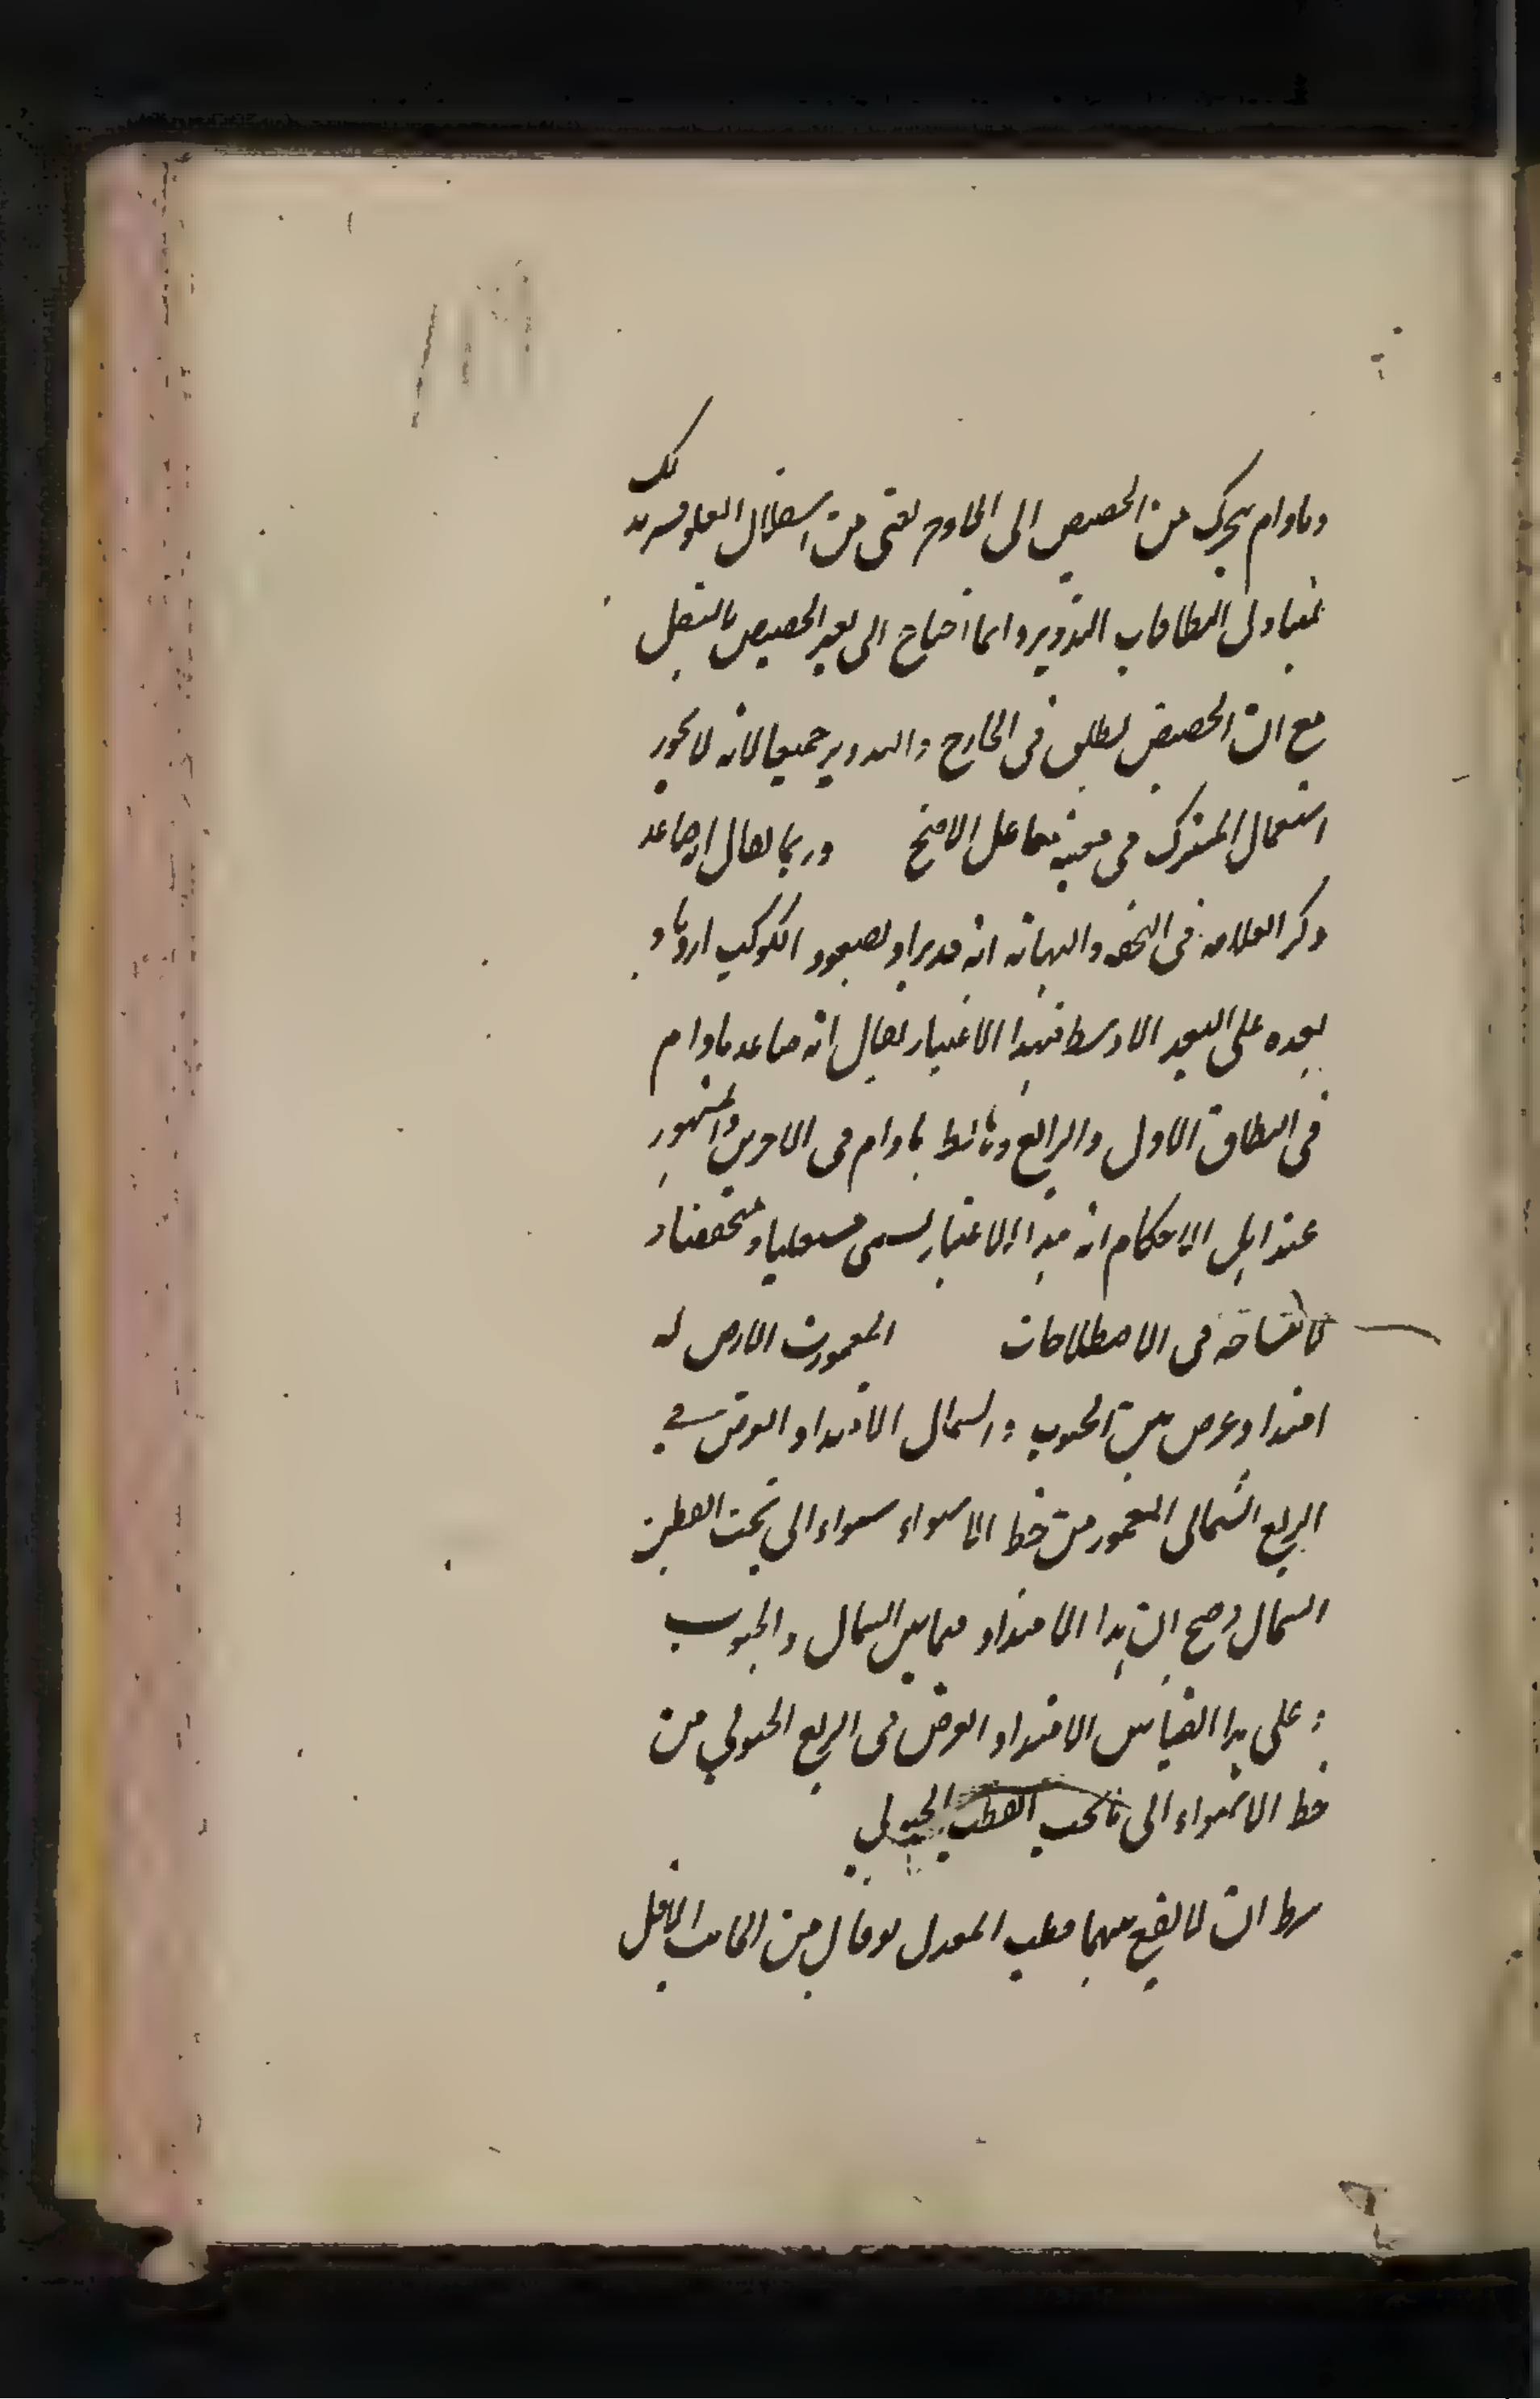 ومادام يتحرك من الحضيض الى الاوج يعنى من اسفل الى العلو
النطاقات التدوير وانما احتاج الى بعد الحضيض بالسفل
مع ان الحضيض يطلق فى الخارج والتدوير جميعا لانه لا يجوز
استعمال المشترك فى معنييه معا على الاصح وربما يقال انه صاعد
ذكر العلامه فى التحفه والنهايه انه قد يراد بصعود الكوكب ازدياد
بعده على البعد الاوسط فبهذا الاعتبار يقال انه صاعد مادام
فى النطاق الاول والرابع وهابط مادام فى الاخرين والمشهور
عند اهل الاحكام انه بهذا الاعتبار يسمى مستعليا ومنخفضا و
لا مشاحه فى الاصطلاحات المعمور من الارض له
امتداد عرض بين الجنوب و الشمال الامتداد العرض في
الربع الشمالى المعمور من خط الاستواء سواء الى تحت القطب
الشمال وصح ان هذا الامتداد فيما بين الشمال والجنوب
و على هذا القياس الامتداد العرض فى الربع الجنوبي من
خط الاستواء الى ماتحت القطب الجنوبي
شرط ان لا يقع بينهما قطب المعدل يوقال من الجانب الاقل